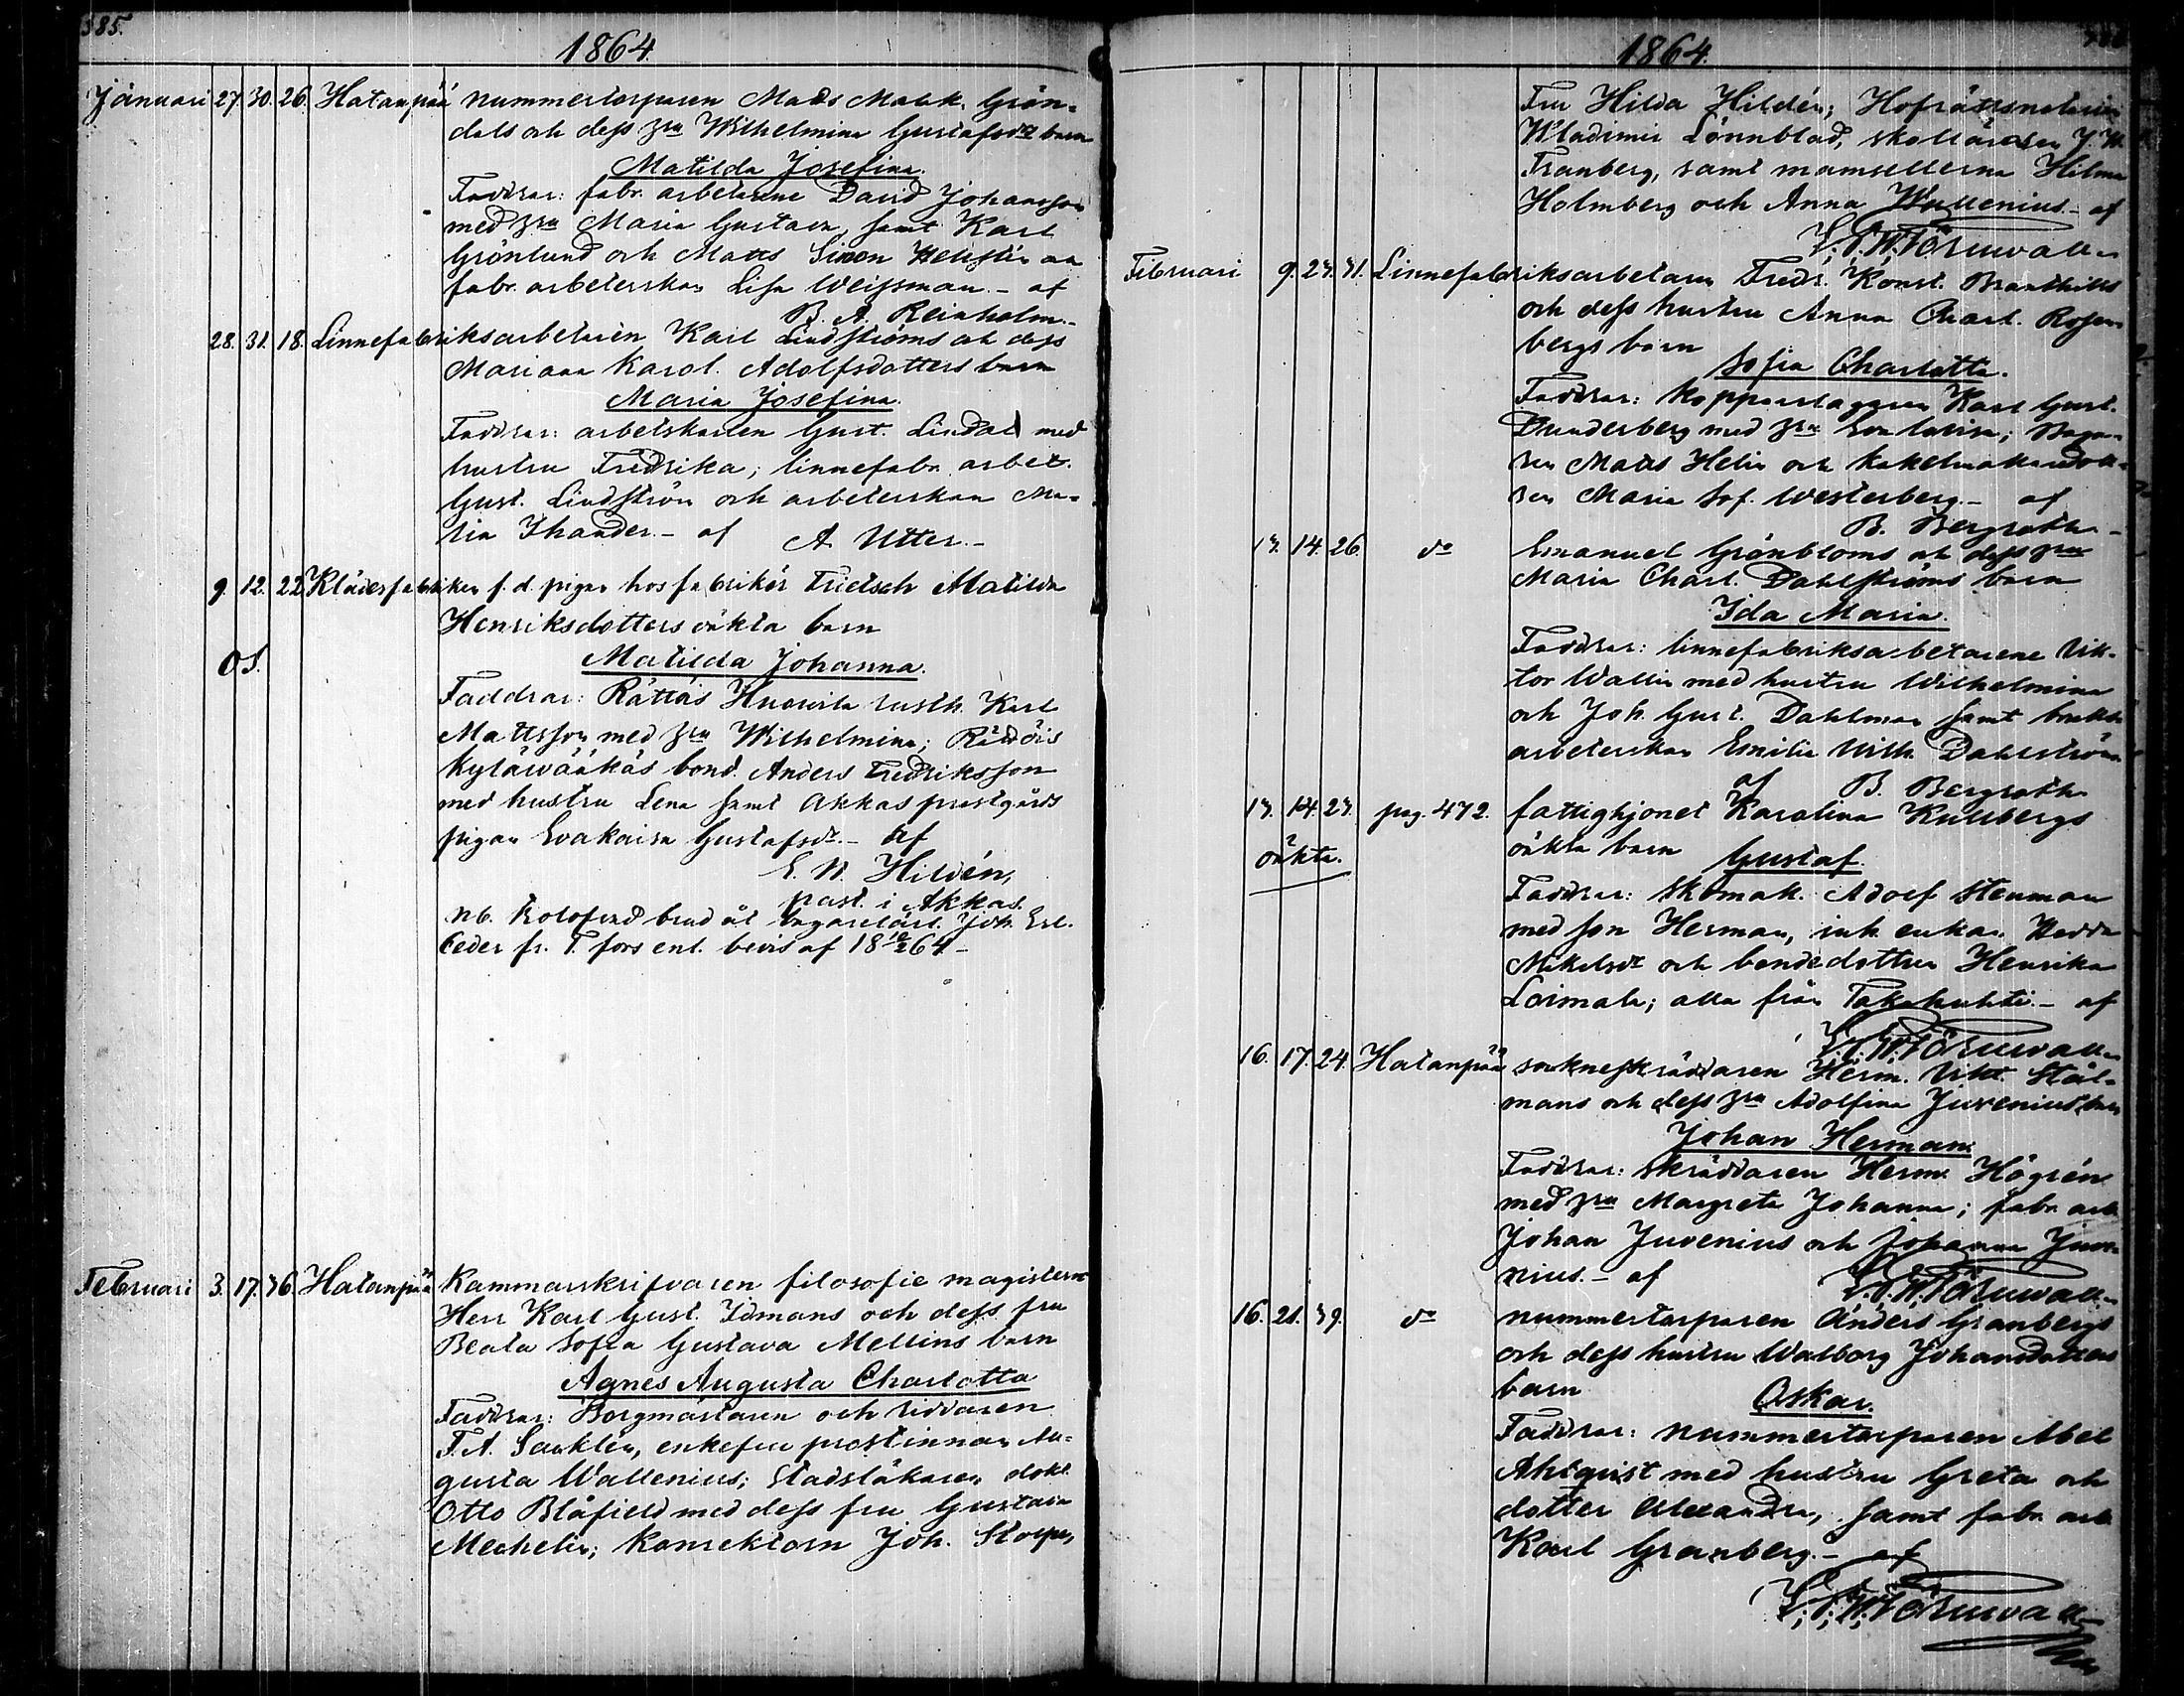 385.
1864.
Januari 27. 30. 26. Hatanpää nummertorparen Matts Grön-
dals och dess hru Wilhelmina Gustafsdr barn
Matilda Josefina.
Faddrar: fabr. arbetarene David Johansson
med hru Maria Gustava, samt Karl
Grönlund och Matts Simon
fabr. arbeterskan Lisa Weissman. – af
B. A. Reinholm.
28. 31. 18. Linnefabriksarbetaren Karl Lindströms och dess
Mariana Karol. Adolfsdotters barn
Maria Josefina.
Faddrar: arbetskarlen Gust. Lindal med
hustru Fredrika; linnefabr. arbet.
Gust. Lindström och arbeterskan Ma-
ria Thander. – af A. Utter. –
9. 12. 22. Klädesfabriken f. d. pigan hos fabrikör Frietsch Matilda
Henriksdotters oäkta barn
OS.
Matilda Johanna.
Faddrar: Rättäis rusth. Karl
Mattsson med hru Wilhelmina;
Kylävääkäs bond. Anders Fredriksson
med hustru Lena samt Akkas prestgårds
pigan Evakaisa Gustafsdr. – af
E. N. Hildén,
past. i Akkas.
nb. Trolofvad brud åt Joh. Erl.
Ceder fr. T.fors enl. bevis af 18 10/2 64 –
Februari 3. 17. 36. Hatanpää Kammarskrifvaren filosofie magistern
Herr Karl Gust. Idmans och dess fru
Beata Sofia Gustava Mellins barn
Agnes Augusta Charlotta
Faddrar: Borgmästaren och riddaren
F. A. Sanklen, enkefru prostinnan Au-
gusta Wallenius; Stadsläkaren dokt.
Otto Blåfield med dess fru Gustava
Mechelin; Konrektorn Joh.
1864.
Fru Hilda Hildén; Hofrättsnotarien
Wladimir Lönnblad, skolläraren J. W.
Franberg, samt mamsellerna Hilma
Holmberg och Anna Wallenius. – af
Februari 9. 23. 31. Linnefabriksarbetaren Fredr. Konst.
och dess hustru Anna Charl. Rosen-
bergs barn
Sofia Charlotta.
Faddrar: Kopparslagaren Karl Gust.
Dunderberg med hru Eva Lovisa;
ren Matts Helin och kakelmakaredott-
ren Maria Sof. Westerberg. – af
B. Bergroth. –
13. 14. 26. do Emanuel Grönbloms och dess hru
Maria Charl. Dahlströms barn
Ida Maria.
Faddrar: linnefabriksarbetarene Vik-
tor Wallin med hustru Wilhelmina
och Joh. Gust. Dahlman samt
arbeterskan Emilia Wilh. Dahlström
af B. Bergroth
13. 14. 23. pag. 472. fattighjonet Karolina Kullbergs
oäkta.
oäkta barn Gustaf.
Faddrar: Skomak. Adolf Stenman
med son Herman, inh. enkan Hedda
Mikelsdr och bondedottren Henrika
Loimala; alla från Takahuhti. – af
16. 17. 24. Hatanpää sockneskräddaren Herm. Vikt. Stål-
mans och dess hru Adolfina Juvenius barn
Johan Herman.
Faddrar: skräddaren Herm. Högrén
med hru Margreta Johanna; fabr. arb.
Johan Juvenius och Johanna Juve-
nius. – af
16. 21. 39. do nummertorparen Anders Granbergs
och dess hustru Walborg Johansdotters
barn Oskar.
Faddrar: nummertorparen Abel
Ahlquist med hustru Greta och
dotter Alexandra, samt fabr. arb.
Karl Granberg. – af